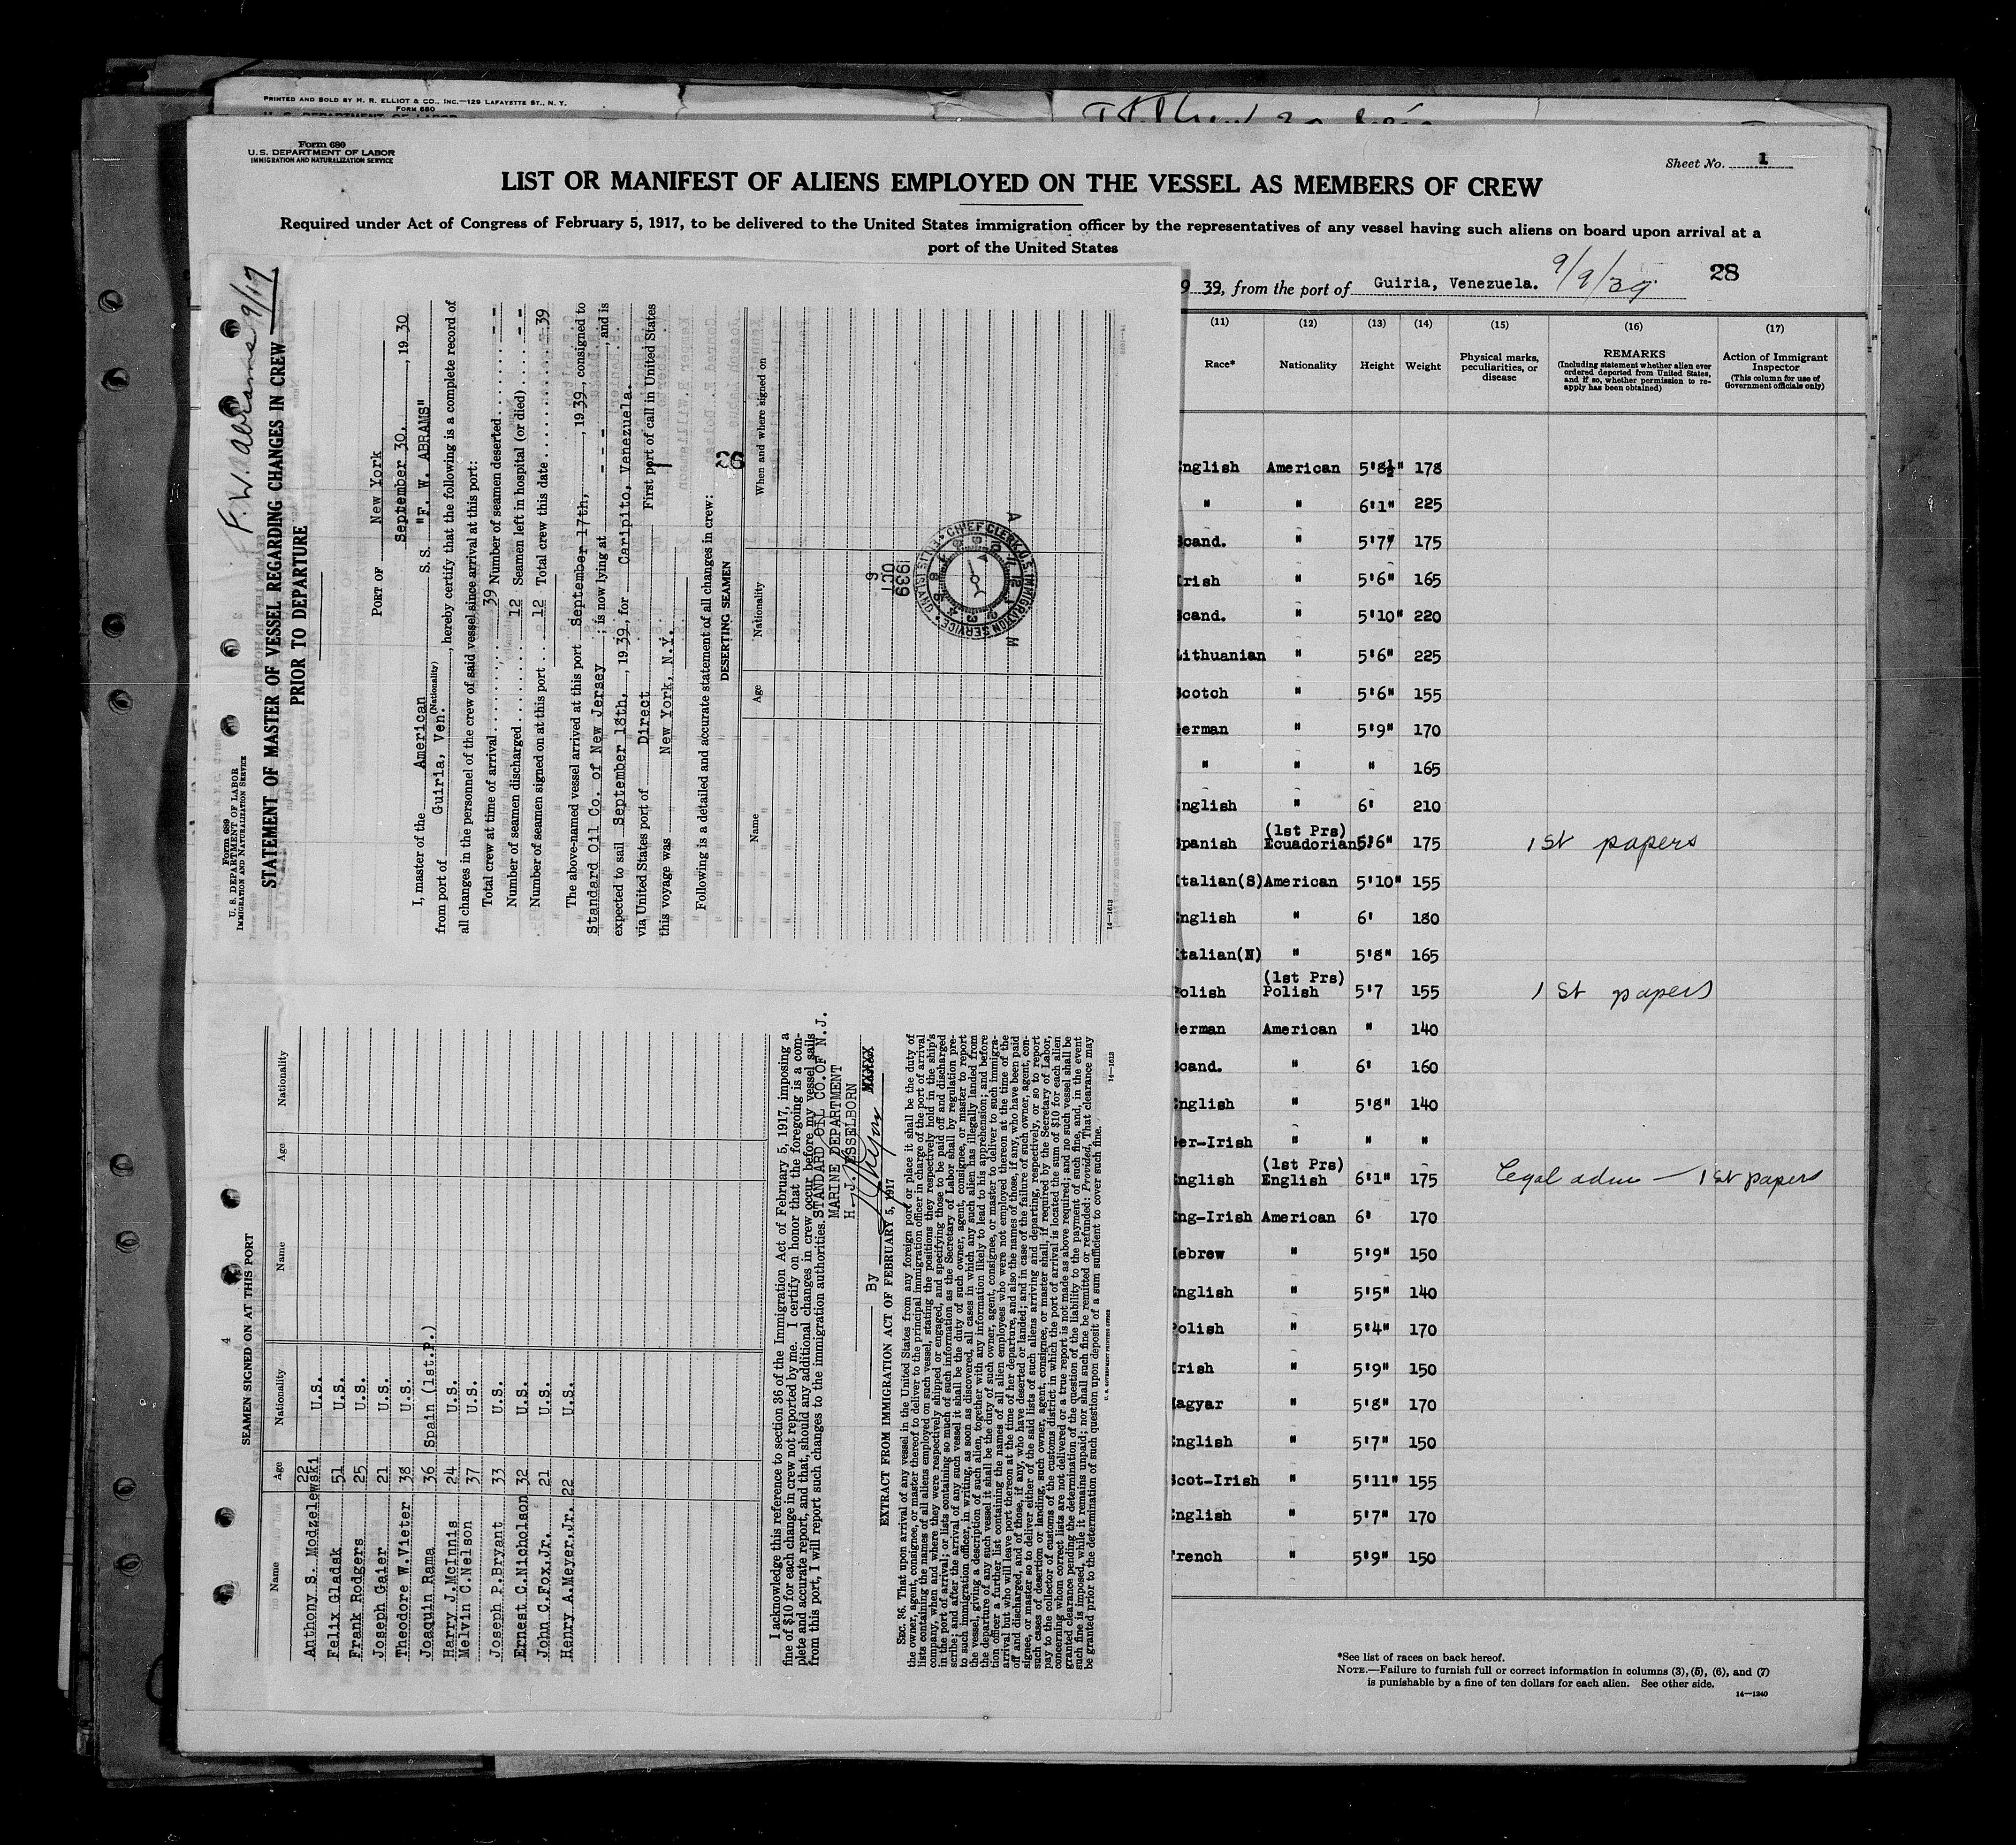 PRINTED AND SOLD BY H. R. ELLIOT & CO., INC.—129 LAFAYETTE ST., N. Y.
FORM 680
U. S. DEPARTMENT OF LABOR
Form 680
U.S. DEPARTMENT OF LABOR
IMMIGRATION AND NATURALIZATION SERVICE
Sheet No. 1
LIST OR MANIFEST OF ALIENS EMPLOYED ON THE VESSEL AS MEMBERS OF CREW
Required under Act of Congress of February 5, 1917, to be delivered to the United States immigration officer by the representatives of any vessel having such aliens on board upon arrival at a
port of the United States
9 39, from the port of Guiria, Venezuela. 9/9/39 28
(11) (12) (13) (14) (15) (16) (17)
Race* Nationality Height Weight Physical marks, peculiarities, or disease REMARKS (Including statement whether alien ever ordered deported from United States, and if so, whether permission to reapply has been obtained) Action of Immigrant Inspector (This column for use of Government officials only)
nglish American 5'8½" 178
" " 6'1" 225
cand. " 5'7" 175
rish " 5'6" 165
cand. " 5'10" 220
ithuanian " 5'6" 225
cotch " 5'6" 155
erman " 5'9" 170
" " " 165
nglish " 6' 210
(1st Prs)
panish Ecuadorian 5'6" 175 1st papers
talian(S) American 5'10" 155
nglish " 6' 180
talian(N) " 5'8" 165
(1st Prs)
olish Polish 5'7 155 1st papers
erman American " 140
cand. " 6' 160
nglish " 5'8" 140
er-Irish " " "
(1st Prs)
nglish English 6'1" 175 Legal adm — 1st papers
ng-Irish American 6' 170
ebrew " 5'9" 150
nglish " 5'5" 140
olish " 5'4" 170
rish " 5'9" 150
agyar " 5'8" 170
nglish " 5'7" 150
cot-Irish " 5'11" 155
nglish " 5'7" 170
rench " 5'9" 150
*See list of races on back hereof.
NOTE.—Failure to furnish full or correct information in columns (3), (5), (6), and (7)
is punishable by a fine of ten dollars for each alien. See other side.
14—1240
U. S. DEPARTMENT OF LABOR
Form 689
IMMIGRATION AND NATURALIZATION SERVICE
F. W. Abrams 9/17
STATEMENT OF MASTER OF VESSEL REGARDING CHANGES IN CREW
PRIOR TO DEPARTURE
PORT OF New York
September 30, , 1930
I, master of the American S. S. "F. W. ABRAMS"
(Nationality)
from port of Guiria, Ven. , hereby certify that the following is a complete record of
all changes in the personnel of the crew of said vessel since arrival at this port:
Total crew at time of arrival 39 Number of seamen deserted - -
Number of seamen discharged 12 Seamen left in hospital (or died) - -
Number of seamen signed on at this port 12 Total crew this date 39
The above-named vessel arrived at this port September 17th, , 1939, consigned to
Standard Oil Co. of New Jersey ; is now lying at - - - , and is
expected to sail September 18th, , 1939, for Caripito, Venezuela.
via United States port of Direct First port of call in United States
this voyage was New York, N.Y.
Following is a detailed and accurate statement of all changes in crew: 26
DESERTING SEAMEN
Name Age Nationality When and where signed on
CHIEF CLERK U.S. IMMIGRATION SERVICE ELLIS ISLAND
1939
OCT
6
A M
14—1613
4
SEAMEN SIGNED ON AT THIS PORT
Name Age Nationality Name Age Nationality
Anthony S. Modzelewski 22 U.S.
Felix Gladsk 51 U.S.
Frank Rodgers 25 U.S.
Joseph Gaier 21 U.S.
Theodore W.Vieter 38 U.S.
Joaquin Rama 36 Spain (1st.P.)
Harry J.McInnis 24 U.S.
Melvin C.Nelson 37 U.S.
Joseph P.Bryant 33 U.S.
Ernest C.Nicholson 32 U.S.
John C.Fox,Jr. 21 U.S.
Henry A.Meyer,Jr. 22 U.S.
I acknowledge this reference to section 36 of the Immigration Act of February 5, 1917, imposing a
fine of $10 for each change in crew not reported by me. I certify on honor that the foregoing is a com-
plete and accurate report, and that, should any additional changes in crew occur before my vessel sails
from this port, I will report such changes to the immigration authorities. STANDARD OIL CO.OF N.J.
MARINE DEPARTMENT
H. J. ESSELBORN
By
EXTRACT FROM IMMIGRATION ACT OF FEBRUARY 5, 1917
SEC. 36. That upon arrival of any vessel in the United States from any foreign port or place it shall be the duty of
the owner, agent, consignee, or master thereof to deliver to the principal immigration officer in charge of the port of arrival
lists containing the names of all aliens employed on such vessel, stating the positions they respectively hold in the ship's
company, when and where they were respectively shipped or engaged, and specifying those to be paid off and discharged
in the port of arrival; or lists containing so much of such information as the Secretary of Labor shall by regulation pre-
scribe; and after the arrival of any such vessel it shall be the duty of such owner, agent, consignee, or master to report
to such immigration officer, in writing, as soon as discovered, all cases in which any such alien has illegally landed from
the vessel, giving a description of such alien, together with any information likely to lead to his apprehension; and before
the departure of any such vessel it shall be the duty of such owner, agent, consignee, or master to deliver to such immigra-
tion officer a further list containing the names of all alien employees who were not employed thereon at the time of the
arrival but who will leave port thereon at the time of her departure, and also the names of those, if any, who have been paid
off and discharged, and of those, if any, who have deserted or landed; and in case of the failure of such owner, agent, con-
signee, or master so to deliver either of the said lists of such aliens arriving and departing, respectively, or so to report
such cases of desertion or landing, such owner, agent, consignee, or master shall, if required by the Secretary of Labor,
pay to the collector of customs of the customs district in which the port of arrival is located the sum of $10 for each alien
concerning whom correct lists are not delivered or a true report is not made as above required; and no such vessel shall be
granted clearance pending the determination of the question of the liability to the payment of such fine, and, in the event
such fine is imposed, while it remains unpaid; nor shall such fine be remitted or refunded: Provided, That clearance may
be granted prior to the determination of such question upon deposit of a sum sufficient to cover such fine.
14—1613